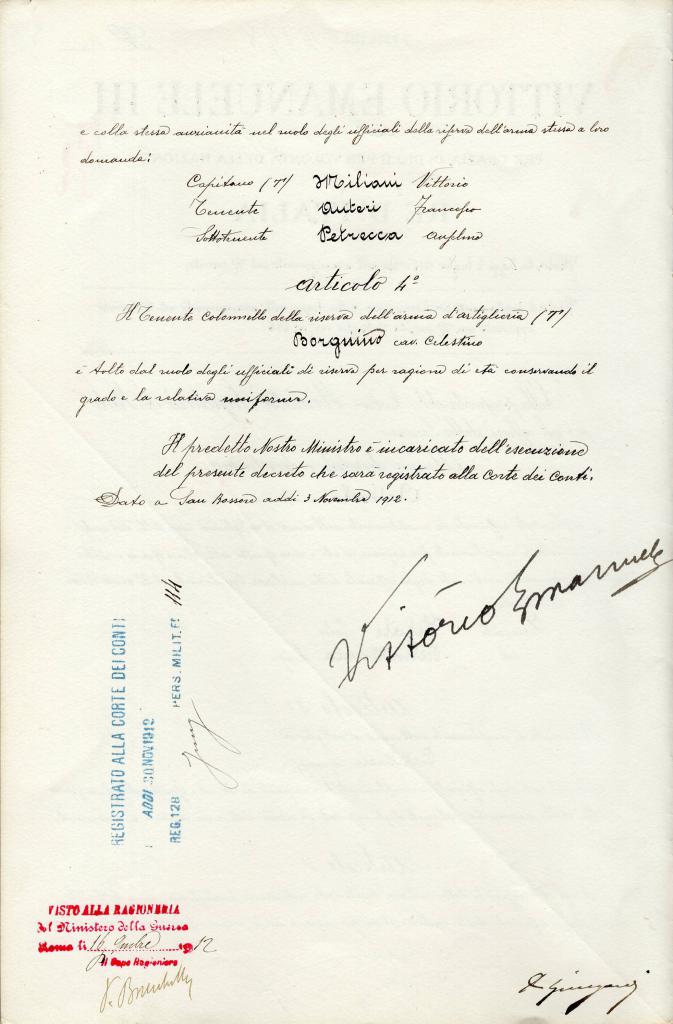 e colla stessa anzianità nel ruolo degli ufficiali della riserva dell'arma stessa a loro
domanda:
Capitano (T) Miliani Vittorio
Tenente Auteri Francesco
Sottotenente Petrecca Anselmo
Articolo 4°
Il Tenente Colonnello della riserva dell'arma d'artiglieria (T)
Borgnino cav. Celestino
è tolto dal ruolo degli ufficiali di riserva per ragione di età conservando il
grado e la relativa uniforme.
Il predetto Nostro Ministro è incaricato dell'esecuzione
del presente decreto che sarà registrato alla Corte dei Conti.
Dato a San Rossore addì 3 Novembre 1912.
Vittorio Emanuele
REGISTRATO ALLA CORTE DEI CONTI
ADDI 30 NOV 1912
REG. 128 PERS. MILIT. F° 114
VISTO ALLA RAGIONERIA
del Ministero della Guerra
Roma li 16 1912
Il Capo Ragioniere